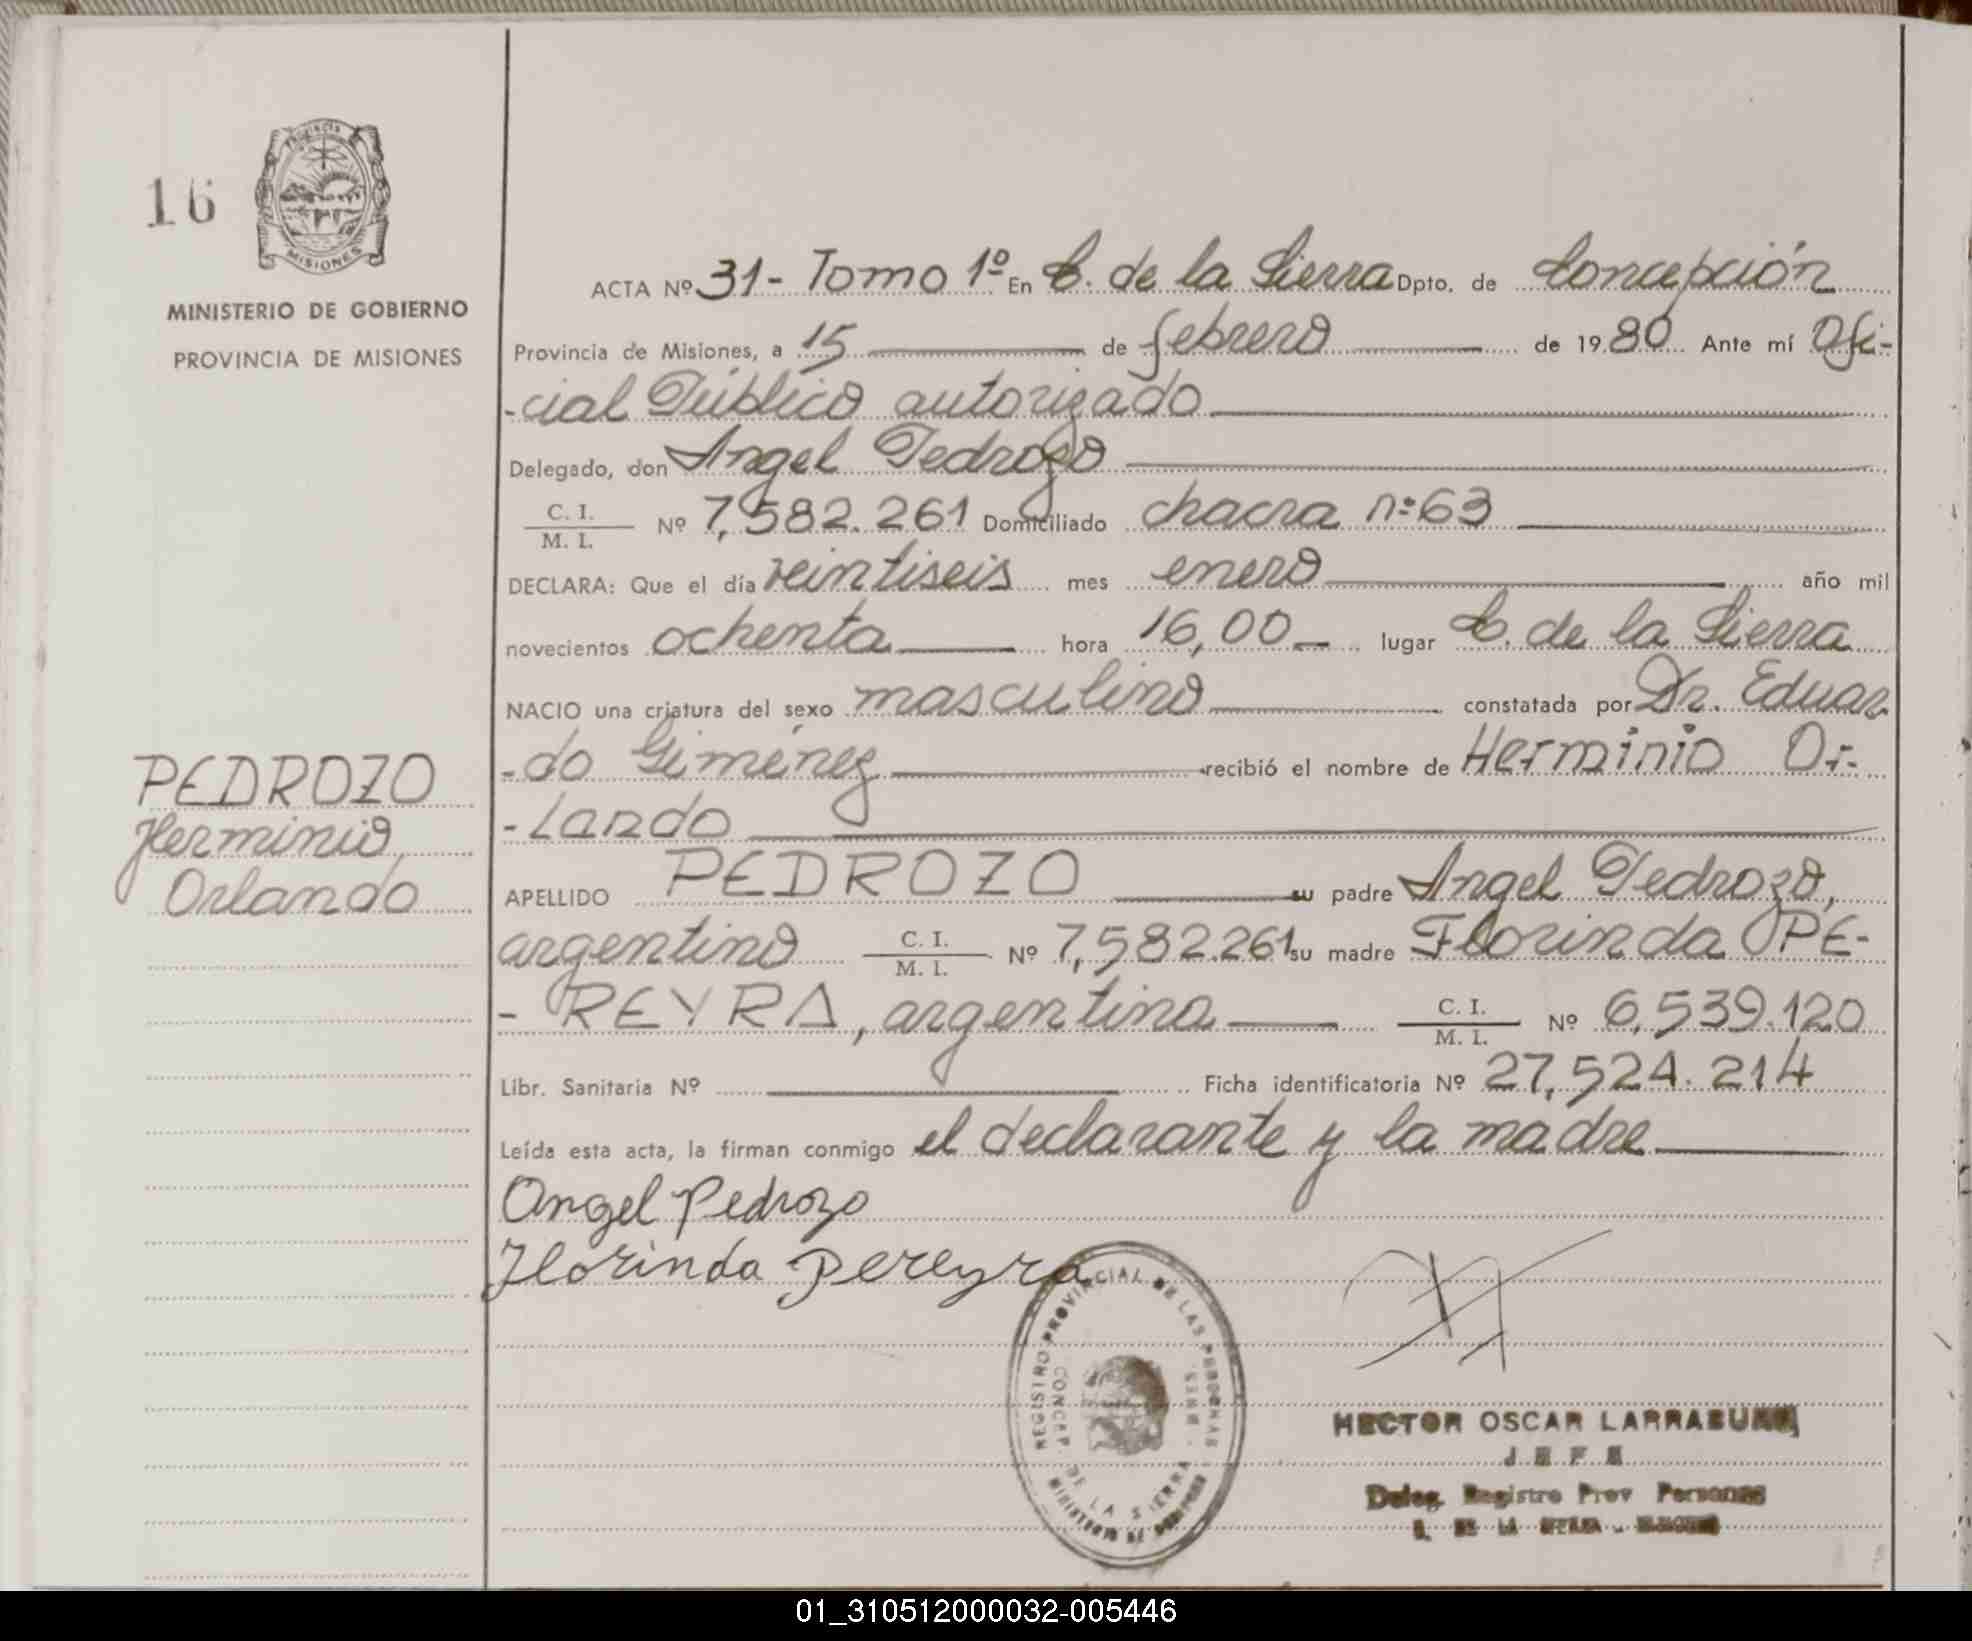 16
Provincia
MISIONES
MINISTERIO DE GOBIERNO
PROVINCIA DE MISIONES
PEDROZO
Herminio
Orlando
ACTA Nº 31- Tomo 1º En C. de la Sierra Dpto. de Concepción
Provincia de Misiones, a 15 de febrero de 1980 Ante mí Ofi-
-cial Público autorizado
Delegado, don Angel Pedrozo
C. I.
M. I. Nº 7,582.261 Domiciliado chacra nº 63
DECLARA: Que el día veintiseis mes enero año mil
novecientos ochenta hora 16,00 lugar C. de la Sierra
NACIO una criatura del sexo masculino constatada por Dr. Eduar
-do Giménez recibió el nombre de Herminio Or-
-lando
APELLIDO PEDROZO su padre Angel Pedrozo,
argentino C. I. M. I. Nº 7,582.261 su madre Florinda PE-
-REYRA, argentina C. I. M. I. Nº 6,539.120
Libr. Sanitaria Nº Ficha identificatoria Nº 27,524.214
Leída esta acta, la firman conmigo el declarante y la madre
Angel Pedrozo
Florinda Pereyra
REGISTRO PROVINCIAL DE LAS PERSONAS
CONCEP. DE LA SIERRA
MINISTERIO DE GOBIERNO
HECTOR OSCAR
JEFE
Deleg. Registro Prov Personas
C. DE LA SIERRA - MISIONES
01_310512000032-005446